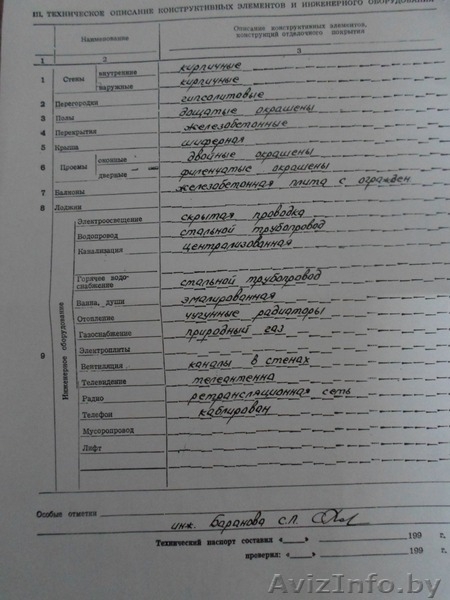 III. ТЕХНИЧЕСКОЕ ОПИСАНИЕ КОНСТРУКТИВНЫХ ЭЛЕМЕНТОВ И ИНЖЕНЕРНОГО ОБОРУДОВАНИЯ
Наименование
Описание конструктивных элементов,
конструкций отделочного покрытия
1 2 3
1 Стены внутренние кирпичные
наружные кирпичные
2 Перегородки гипсолитовые
3 Полы дощатые окрашены
4 Перекрытия железобетонные
5 Крыша шиферная
6 Проемы оконные двойные окрашены
дверные филенчатые окрашены
7 Балконы железобетонная плита с огражден
8 Лоджии
9 Инженерное оборудование
Электроосвещение скрытая проводка
Водопровод стальной трубопровод
Канализация централизованная
Горячее водо-
снабжение стальной трубопровод
Ванна, души эмалированная
Отопление чугунные радиаторы
Газоснабжение природный газ
Электроплиты
Вентиляция каналы в стенах
Телевидение телеантенна
Радио ретрансляционная сеть
Телефон каблирован
Мусоропровод
Лифт
Особые отметки
инж. Баранова С.Л.
Технический паспорт составил «___» 199 г.
проверил: «___» 199 г.
AvizInfo.by